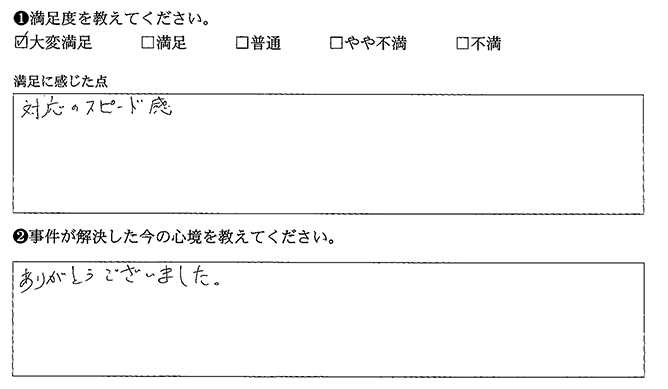 ❶満足度を教えてください。
☑大変満足 □満足 □普通 □やや不満 □不満
満足に感じた点
対応のスピード感
❷事件が解決した今の心境を教えてください。
ありがとうございました。